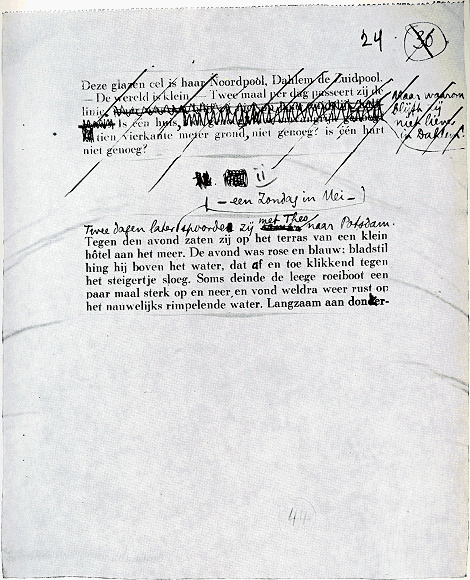 24 30
Deze glazen cel is haar Noordpool, Dahlem de Zuidpool.
— De wereld is klein — Twee maal per dag passeert zij de
linie,
Is één huis,
tien vierkante meter grond, niet genoeg? is één hart
niet genoeg?
Maar waarom
blijft zij
niet liever
in Dahlem?
II
( — een Zondag in Mei — )
Twee dagen later spoorden zij met Theo naar Potsdam.
Tegen den avond zaten zij op het terras van een klein
hôtel aan het meer. De avond was rose en blauw: bladstil
hing hij boven het water, dat af en toe klikkend tegen
het steigertje sloeg. Soms deinde de leege roeiboot een
paar maal sterk op en neer, en vond weldra weer rust op
het nauwelijks rimpelende water. Langzaam aan donker-
44